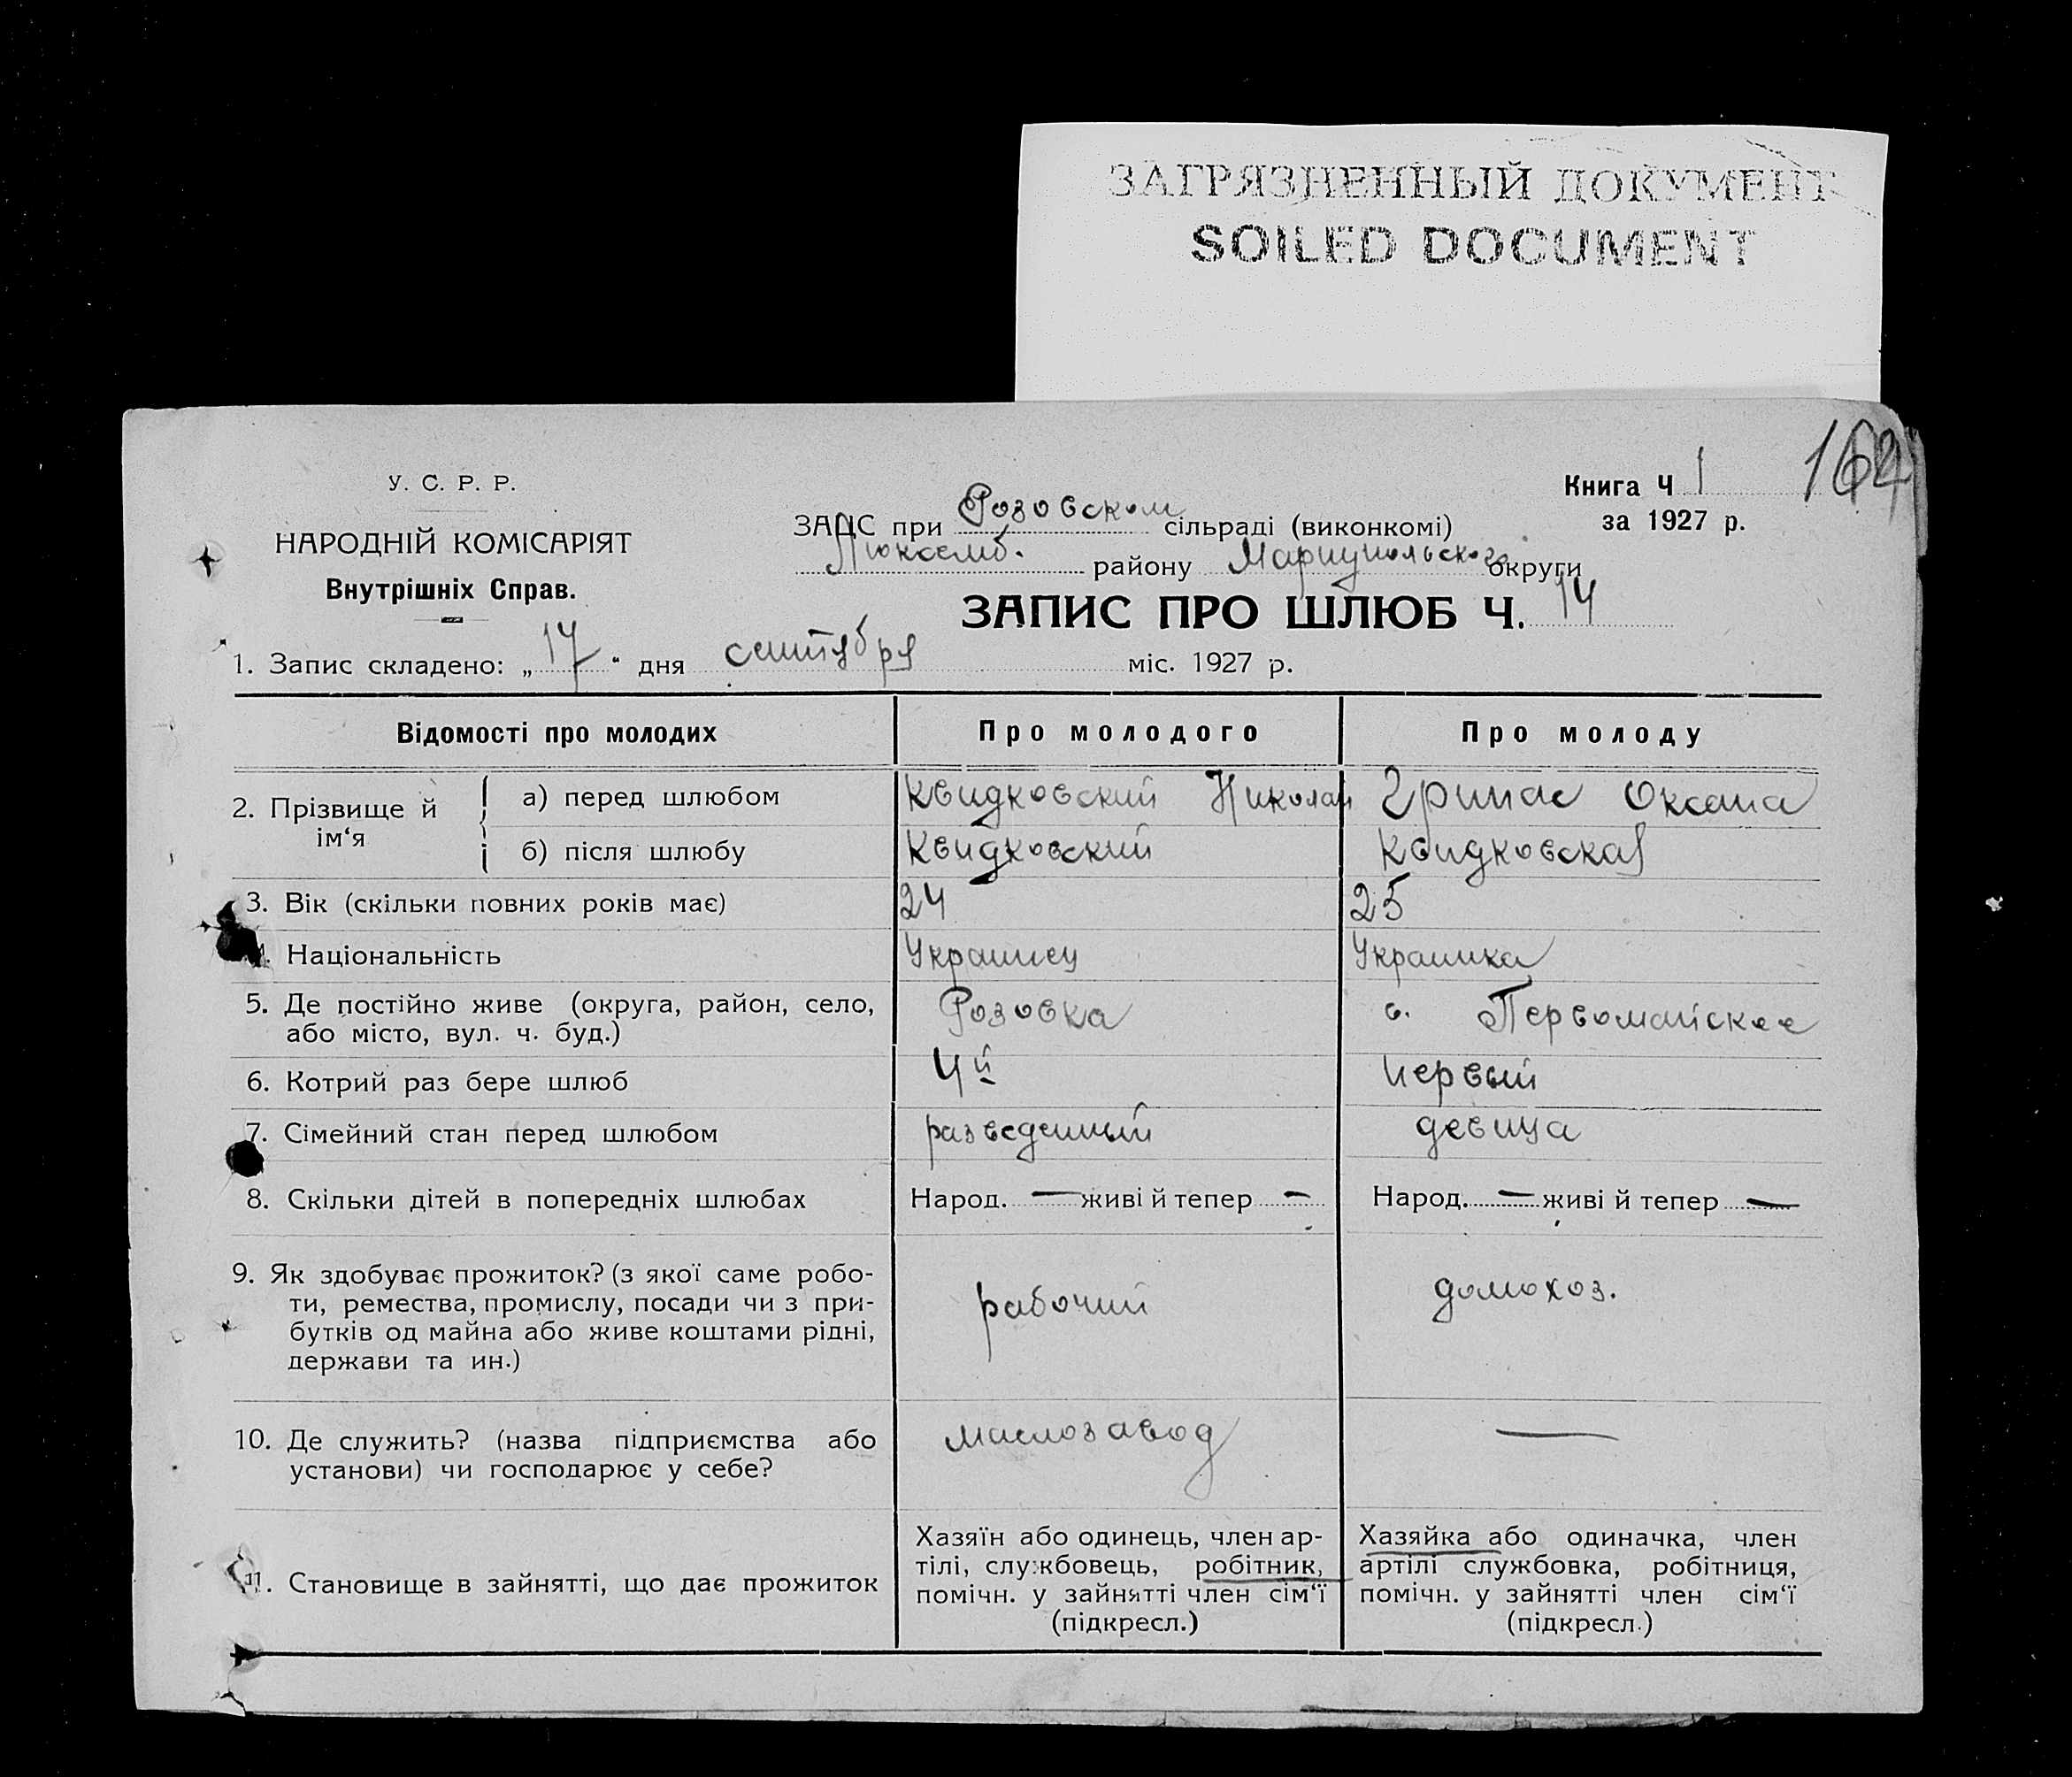 ЗАГРЯЗНЕННЫЙ ДОКУМЕНТ
SOILED DOCUMENT
У. С. Р. Р.
НАРОДНІЙ КОМІСАРІЯТ
Внутрішніх Справ.
ЗАПС при Розовском сільраді (виконкомі)
Люксемб. району Мариупольского округи
Книга Ч 1
за 1927 р.
ЗАПИС ПРО ШЛЮБ Ч. 14
1. Запис складено: „17“ дня сентября міс. 1927 р.
Відомості про молодих Про молодого Про молоду
2. Прізвище й ім‘я
а) перед шлюбом Квидковский Николай Гринас Оксана
б) після шлюбу Квидковский Квидковская
3. Вік (скільки повних років має) 24 25
4. Національність Украинец Украинка
5. Де постійно живе (округа, район, село,
або місто, вул. ч. буд.) Розовка с. Первомайское
6. Котрий раз бере шлюб 4й первый
7. Сімейний стан перед шлюбом разведенный девица
8. Скільки дітей в попередніх шлюбах Народ. — живі й тепер — Народ. — живі й тепер —
9. Як здобуває прожиток? (з якої саме робо-
ти, ремества, промислу, посади чи з при-
бутків од майна або живе коштами рідні,
держави та ин.)
рабочий домохоз.
10. Де служить? (назва підприємства або
установи) чи господарює у себе?
маслозавод —
11. Становище в зайнятті, що дає прожиток
Хазяїн або одинець, член ар-
тілі, службовець, робітник,
помічн. у зайнятті член сім‘ї
(підкресл.)
Хазяйка або одиначка, член
артілі службовка, робітниця,
помічн. у зайнятті член сім‘ї
(підкресл.)